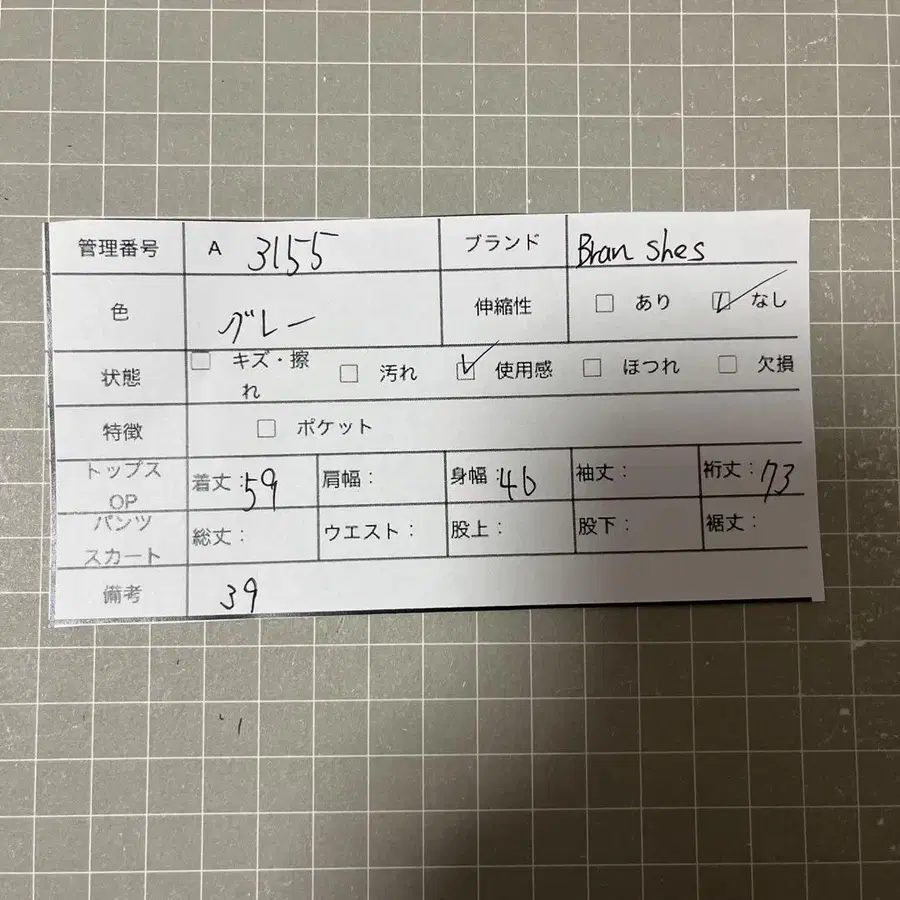 管理番号 A 3155 ブランド Bran shes
色 グレー 伸縮性 □ あり ☑ なし
状態 □ キズ・擦れ □ 汚れ ☑ 使用感 □ ほつれ □ 欠損
特徴 □ ポケット
トップス OP 着丈：59 肩幅： 身幅：46 袖丈： 裄丈：73
パンツ スカート 総丈： ウエスト： 股上： 股下： 裾丈：
備考 39